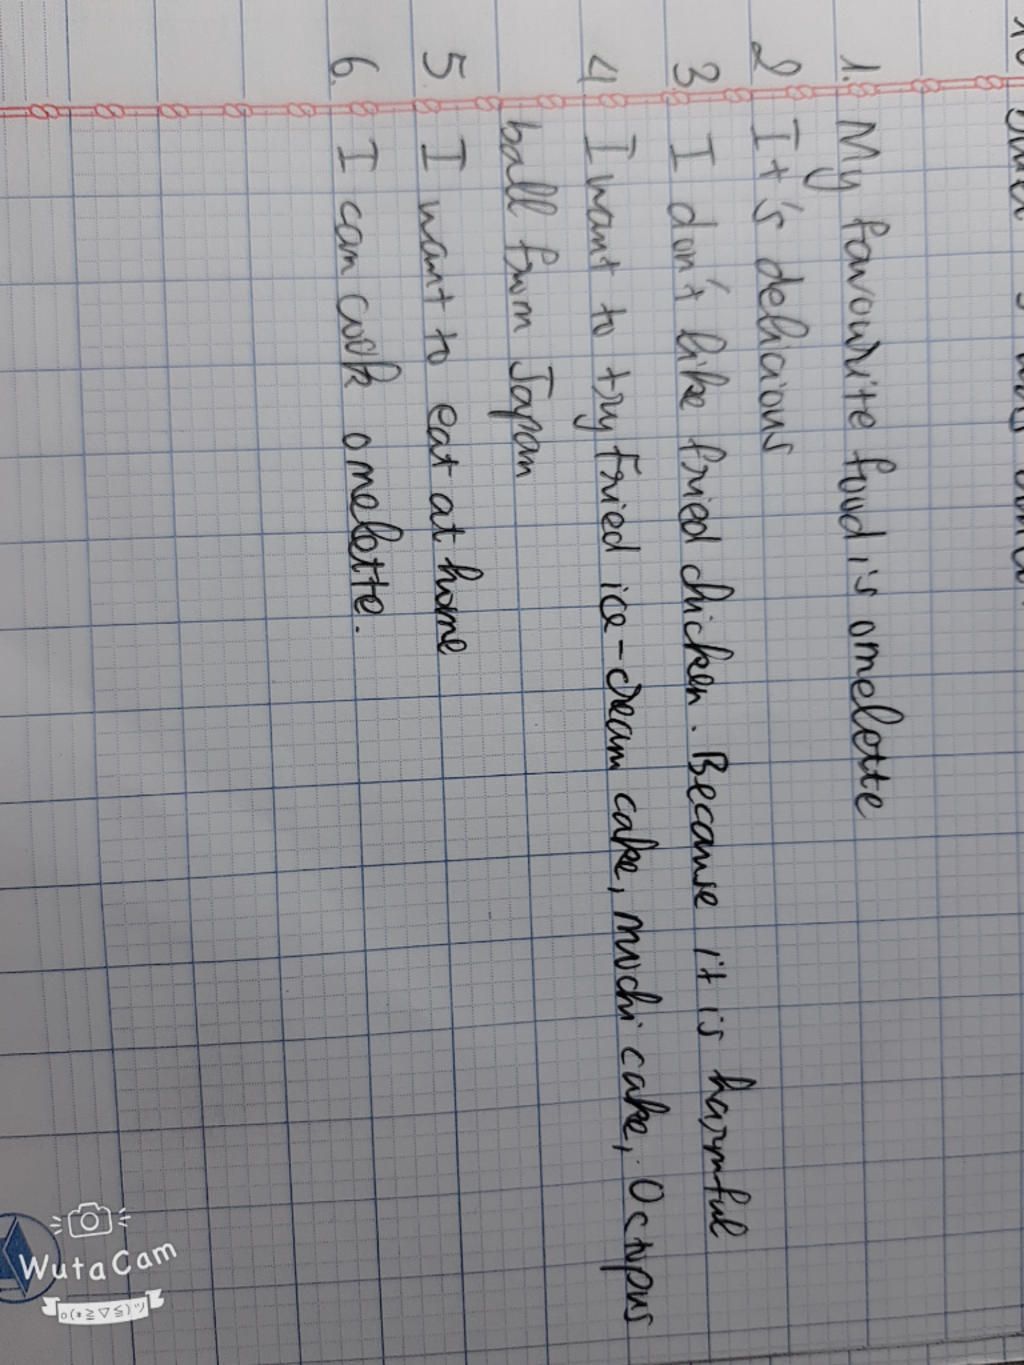 1. My favourite food is omelette
2 It's delicious
3. I don't like fried chicken. Because it is harmful
4 I want to try Fried ice-cream cake, mochi cake, Octopus
ball from Japan
5. I want to eat at home
6. I can cook omelette.
WutaCam
o(*≧▽≦)ツ